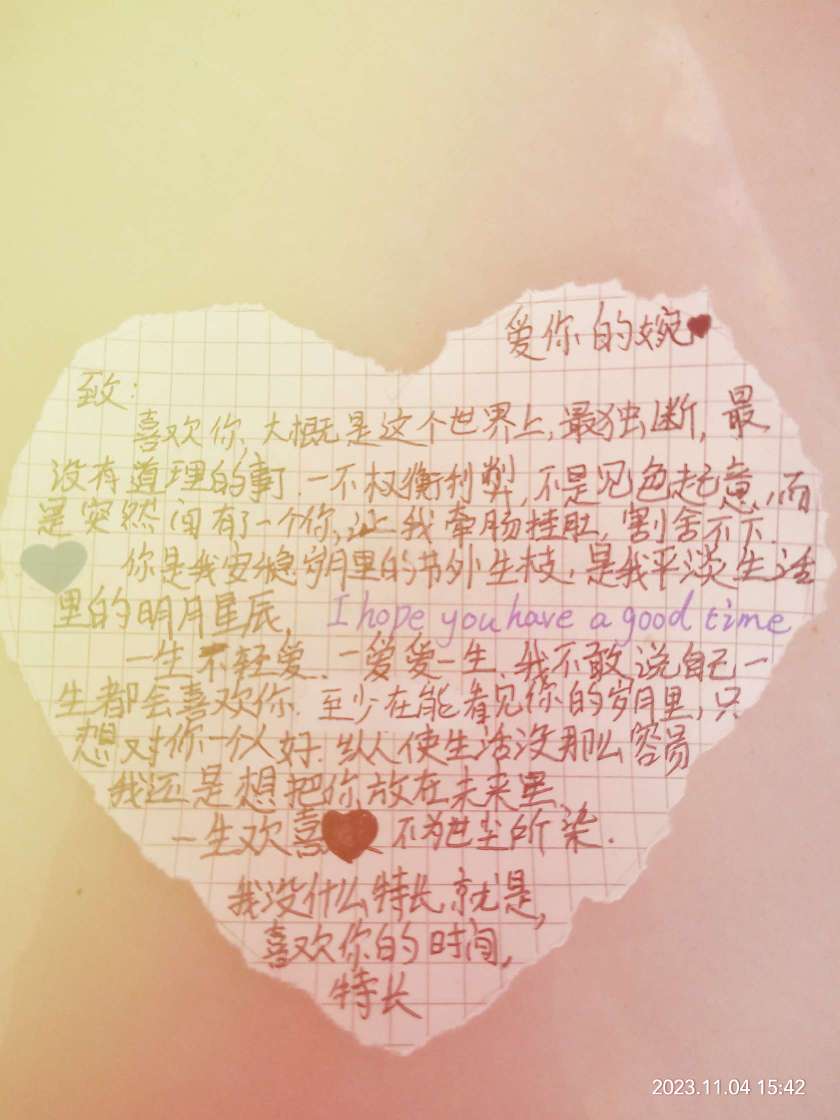 爱你的婉
致:
喜欢你,大概是这个世界上,最独断,最
没有道理的事.一不权衡利弊,不是见色起意,而
是突然间有了一个你,让我牵肠挂肚,割舍不下.
你是我安稳岁月里的节外生枝,是我平淡生活
里的明月星辰, I hope you have a good time
一生不轻爱.一爱爱一生.我不敢说自己一
生都会喜欢你.至少在能看见你的岁月里,只
想对你一个人好.纵使生活没那么容易
我还是想把你放在未来里
一生欢喜 不为世尘所染.
我没什么特长就是,
喜欢你的时间,
特长
2023.11.04 15:42